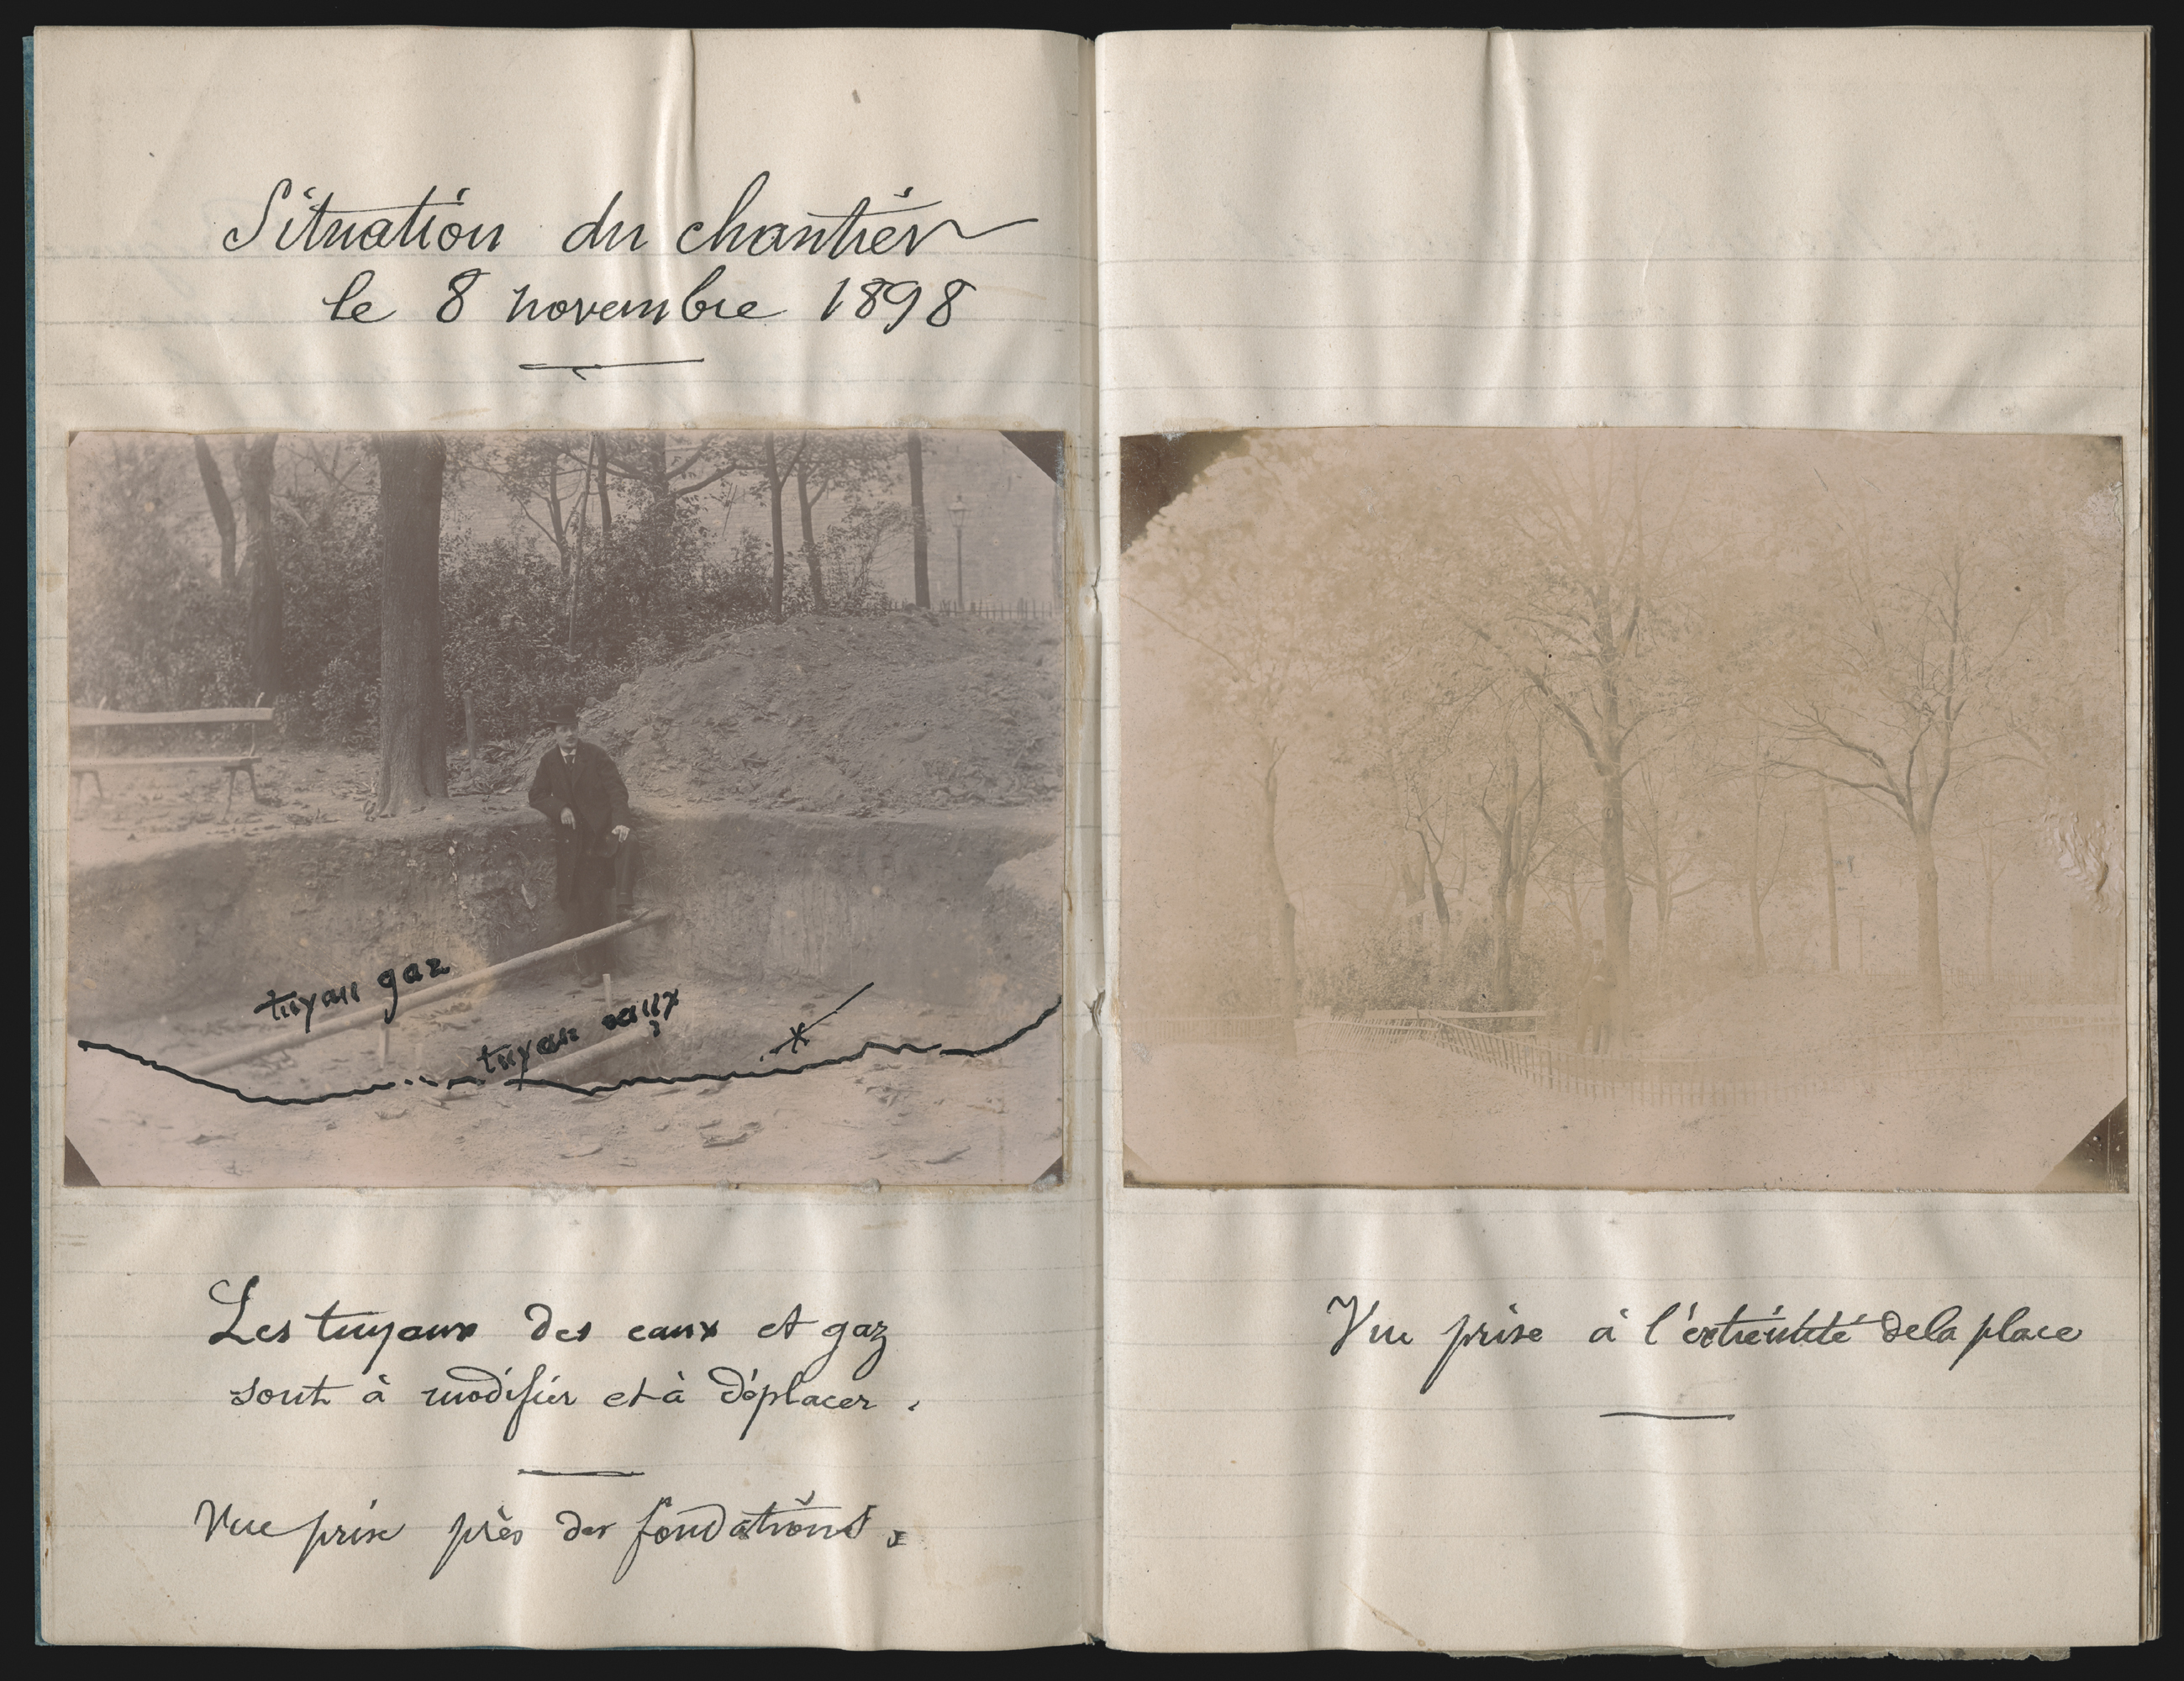 Situation du chantier
le 8 novembre 1898
tuyau gaz
tuyau eaux
Les tuyaux des eaux et gaz
sont à modifier et à déplacer.
Vue prise près des fondations.
Vue prise à l'extrémité de la place